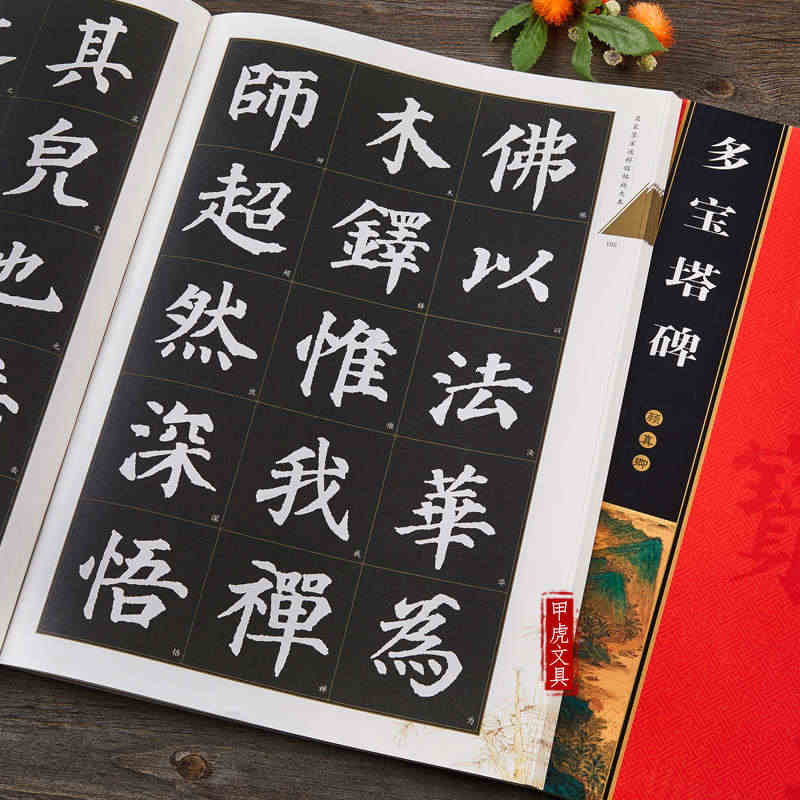 佛以法華為
木鐸惟我禪
師超然深悟
其皃也
多宝塔碑
颜真卿
甲虎文具